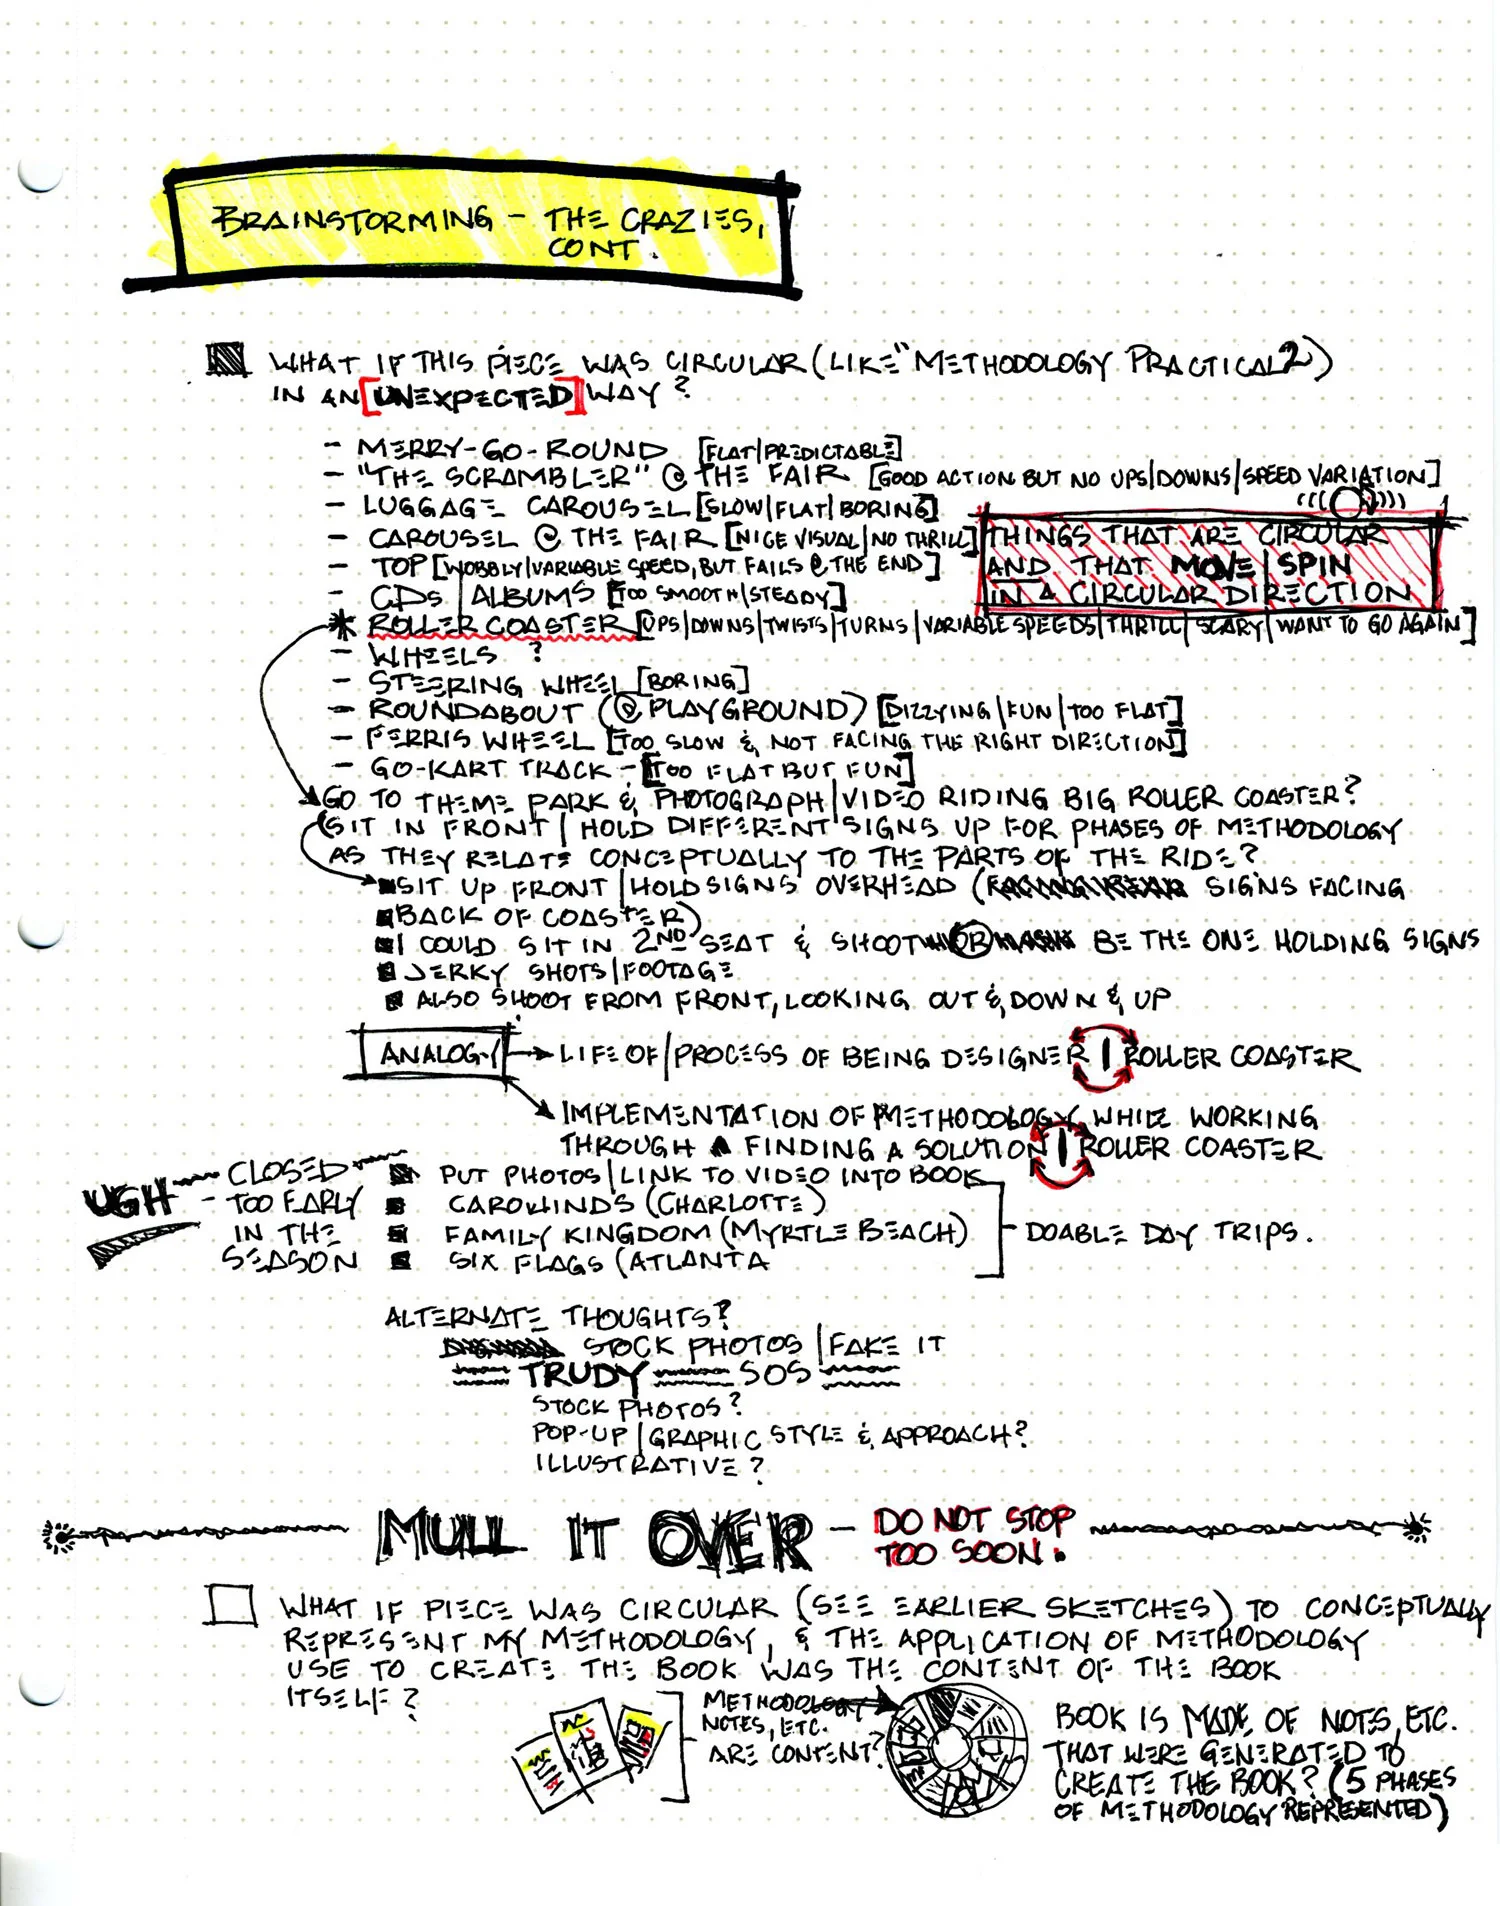 BRAINSTORMING - THE CRAZIES,
CONT.
WHAT IF THIS PIECE WAS CIRCULAR (LIKE "METHODOLOGY PRACTICAL 2)
IN AN [UNEXPECTED] WAY?
- MERRY-GO-ROUND [FLAT|PREDICTABLE]
- "THE SCRAMBLER" @ THE FAIR [GOOD ACTION BUT NO UPS|DOWNS|SPEED VARIATION]
- LUGGAGE CAROUSEL [SLOW|FLAT|BORING]
- CAROUSEL @ THE FAIR [NICE VISUAL|NO THRILL]
- TOP [WOBBLY|VARIABLE SPEED, BUT FAILS @ THE END]
- CDS|ALBUMS [TOO SMOOTH|STEADY]
THINGS THAT ARE CIRCULAR
AND THAT MOVE|SPIN
IN A CIRCULAR DIRECTION
* ROLLER COASTER [UPS|DOWNS|TWISTS|TURNS|VARIABLE SPEEDS|THRILL|SCARY|WANT TO GO AGAIN]
- WHEELS ?
- STEERING WHEEL [BORING]
- ROUNDABOUT (@ PLAYGROUND) [DIZZYING|FUN|TOO FLAT]
- FERRIS WHEEL [TOO SLOW & NOT FACING THE RIGHT DIRECTION]
- GO-KART TRACK - [TOO FLAT BUT FUN]
GO TO THEME PARK & PHOTOGRAPH|VIDEO RIDING BIG ROLLER COASTER?
(SIT IN FRONT|HOLD DIFFERENT SIGNS UP FOR PHASES OF METHODOLOGY
AS THEY RELATE CONCEPTUALLY TO THE PARTS OF THE RIDE?
SIT UP FRONT|HOLD SIGNS OVERHEAD (FACING REAR SIGNS FACING
BACK OF COASTER)
I COULD SIT IN 2ND SEAT & SHOOT OR BE THE ONE HOLDING SIGNS
JERKY SHOTS|FOOTAGE
ALSO SHOOT FROM FRONT, LOOKING OUT & DOWN & UP
ANALOGY → LIFE OF|PROCESS OF BEING DESIGNER | ROLLER COASTER
IMPLEMENTATION OF METHODOLOGY WHILE WORKING
THROUGH A FINDING A SOLUTION | ROLLER COASTER
PUT PHOTOS|LINK TO VIDEO INTO BOOK
CAROWINDS (CHARLOTTE)
FAMILY KINGDOM (MYRTLE BEACH)
SIX FLAGS (ATLANTA
DOABLE DAY TRIPS.
UGH
CLOSED
- TOO EARLY
IN THE
SEASON
ALTERNATE THOUGHTS?
STOCK PHOTOS|FAKE IT
TRUDY SOS
STOCK PHOTOS?
POP-UP|GRAPHIC STYLE & APPROACH?
ILLUSTRATIVE?
MULL IT OVER - DO NOT STOP
TOO SOON.
WHAT IF PIECE WAS CIRCULAR (SEE EARLIER SKETCHES) TO CONCEPTUALLY
REPRESENT MY METHODOLOGY, & THE APPLICATION OF METHODOLOGY
USE TO CREATE THE BOOK WAS THE CONTENT OF THE BOOK
ITSELF?
METHODOLOGY
NOTES, ETC.
ARE CONTENT?
BOOK IS MADE OF NOTES, ETC.
THAT WERE GENERATED TO
CREATE THE BOOK? (5 PHASES
OF METHODOLOGY REPRESENTED)